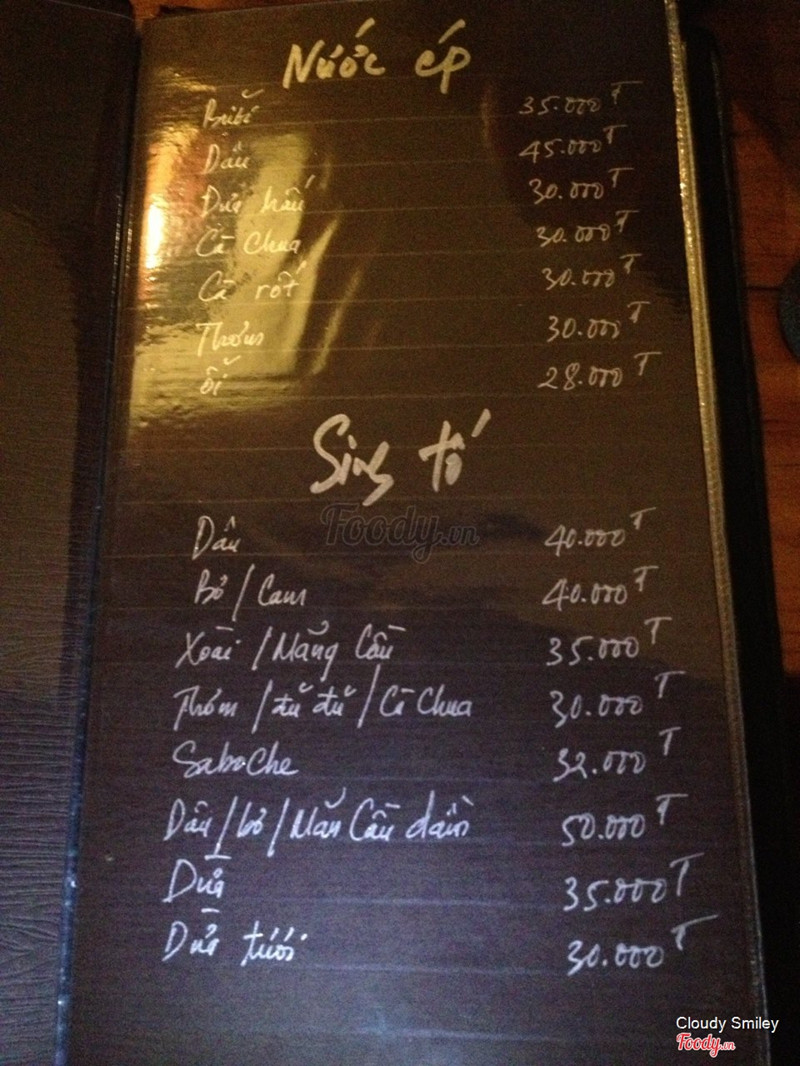 Nước ép
35.000đ
Dâu 45.000đ
Dưa hấu 30.000đ
Cà chua 30.000đ
Cà rốt 30.000đ
Thơm 30.000đ
ổi 28.000đ
Sinh tố
Dâu 40.000đ
Bơ / Cam 40.000đ
Xoài / Mãng Cầu 35.000đ
Thơm / đu đủ / Cà Chua 30.000đ
Saboche 32.000đ
Dâu / bơ / Mãn Cầu dầm 50.000đ
Dừa 35.000đ
Dừa tươi 30.000đ
Foody.vn
Cloudy Smiley
Foody.vn